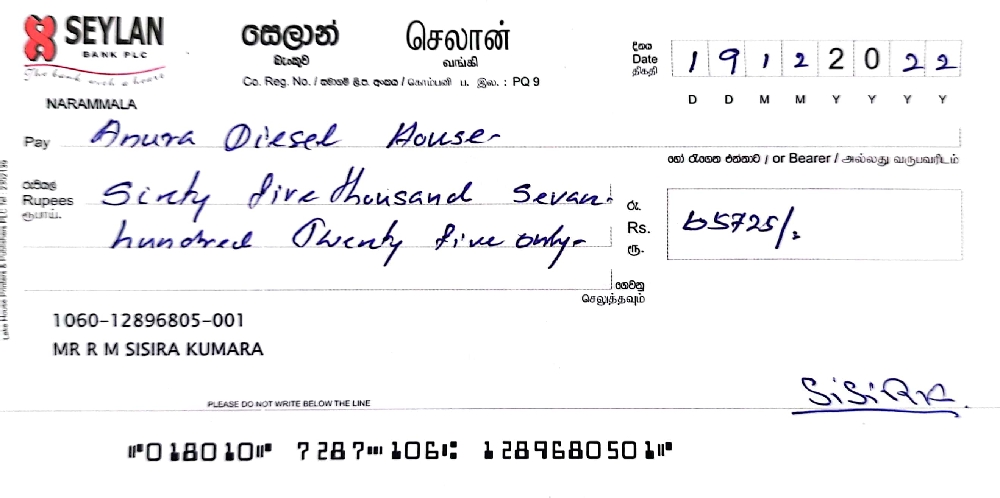 SEYLAN
BANK PLC
The bank with a heart
සෙලාන්
බැංකුව
செலான்
வங்கி
Co. Reg. No. / සමාගම් ලි.ප. අංකය / கொம்பனி ப. இல. : PQ 9
NARAMMALA
දිනය
Date
திகதி
1 9 1 2 2 0 2 2
D D M M Y Y Y Y
Pay Anura Diesel House-
හෝ රැගෙන එන්නාට / or Bearer / அல்லது வருபவரிடம்
රුපියල්
Rupees
ரூபாய்.
Sixty five thousand Sevan
hundred Twenty five only-
රු.
Rs.
ரூ.
65725/-
ගෙවනු
செலுத்தவும்
1060-12896805-001
MR R M SISIRA KUMARA
SiSiRK.
PLEASE DO NOT WRITE BELOW THE LINE
⑈018010⑈ 7287⑉106⑆ 128968050 1⑈